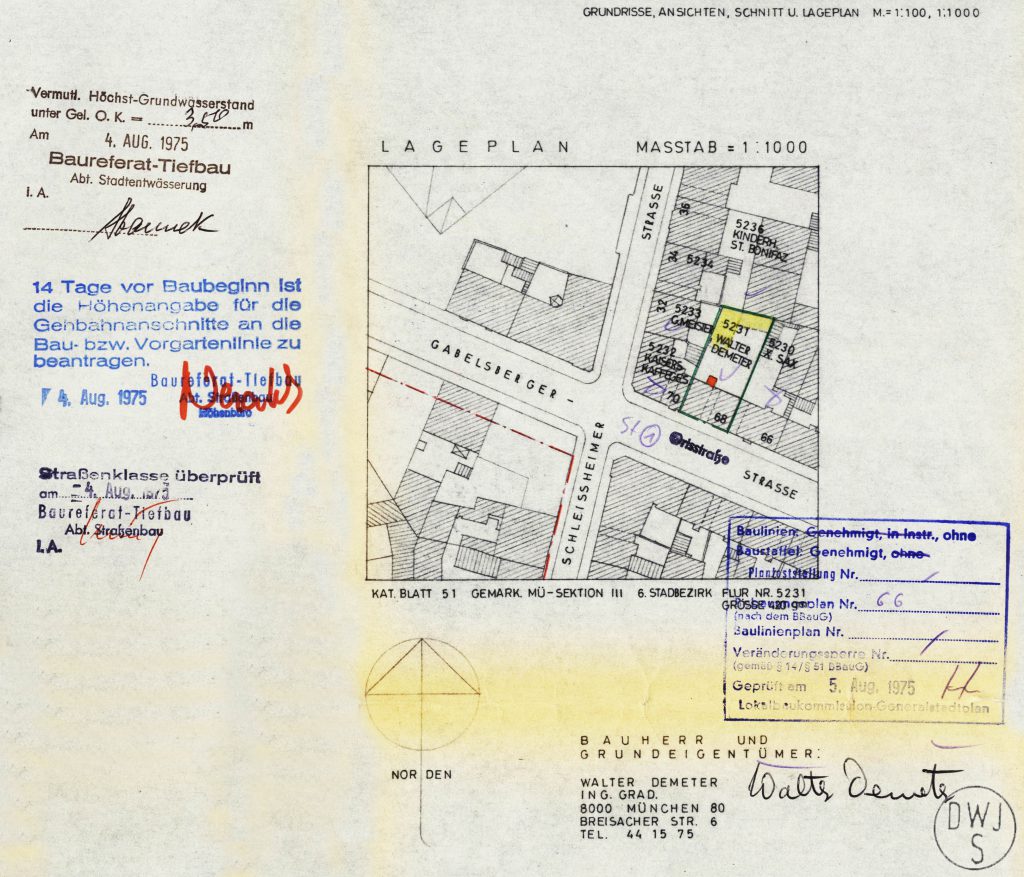 GRUNDRISSE, ANSICHTEN, SCHNITT U. LAGEPLAN M.= 1:100, 1:1000
Vermutl. Höchst-Grundwasserstand
unter Gel. O. K. = 3,50 m
Am 4. AUG. 1975
Baureferat-Tiefbau
Abt. Stadtentwässerung
i. A.
14 Tage vor Baubeginn ist
die Höhenangabe für die
Gehbahnanschnitte an die
Bau- bzw. Vorgartenlinie zu
beantragen.
Baureferat-Tiefbau
4. Aug. 1975 Abt. Straßenbau
Höhenbüro
Straßenklasse überprüft
am -4. Aug. 1975
Baureferat-Tiefbau
Abt. Straßenbau
I.A.
LAGEPLAN MASSTAB = 1:1000
STRASSE
36
5236
KINDERH.
ST. BONIFAZ
34 5234
32
5233
G.MEISTER
5231
WALTER
DEMETER
5230
X. SAX
5232
KAISERS-
KAFFEGES
70
68
66
GABELSBERGER-
St 1 Ortsstraße
STRASSE
SCHLEISSHEIMER
KAT. BLATT 51 GEMARK. MÜ-SEKTION III 6. STADBEZIRK FLUR NR. 5231
GRÖSSE 420 qm
Baulinien: Genehmigt, in Instr., ohne
Baustaffel: Genehmigt, ohne
Planfeststellung Nr.
Bebauungsplan Nr. 66
(nach dem BBauG)
Baulinienplan Nr.
Veränderungssperre Nr.
(gemäß § 14/§ 51 BBauG)
Geprüft am 5. Aug. 1975
Lokalbaukommission-Generalstadtplan
NORDEN
BAUHERR UND
GRUNDEIGENTÜMER:
WALTER DEMETER
ING. GRAD.
8000 MÜNCHEN 80
BREISACHER STR. 6
TEL. 44 15 75
Walter Demeter
DWJ
S